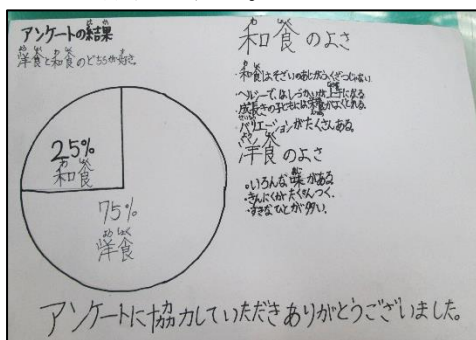 アンケートの結果
洋食と和食のどちらが好き。
25%
和食
75%
洋食
和食のよさ
・和食はそざいのあじがうくざつじゃない
・ヘルシーで、はしづかいが上手になる
・成長きの子どもには栄養がよくとれる。
・バリエーションがたくさんある。
洋食のよさ
・いろんな味がある
・きんにくがたくさんつく。
・すきなひとが多い。
アンケートに協力していただきありがとうございました。